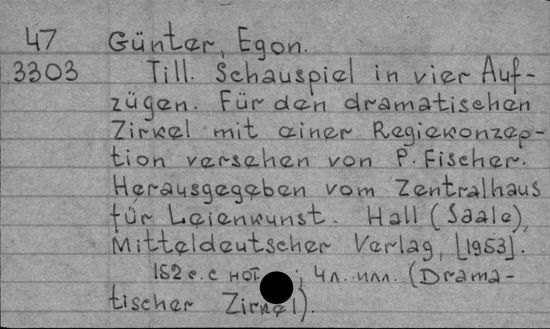 47 Günter, Egon.
3303 Till. Schauspiel in vier Auf-
zügen. Für den dramatischen
Zirkel mit einer Regiekonzep-
tion versehen von P. Fischer.
Herausgegeben vom Zentralhaus
für Leienkunst. Hall (Saale),
Mitteldeutscher Verlag, [1953].
152 с. с нот. ; 4 л. илл. (Drama-
tischer Zirkel).